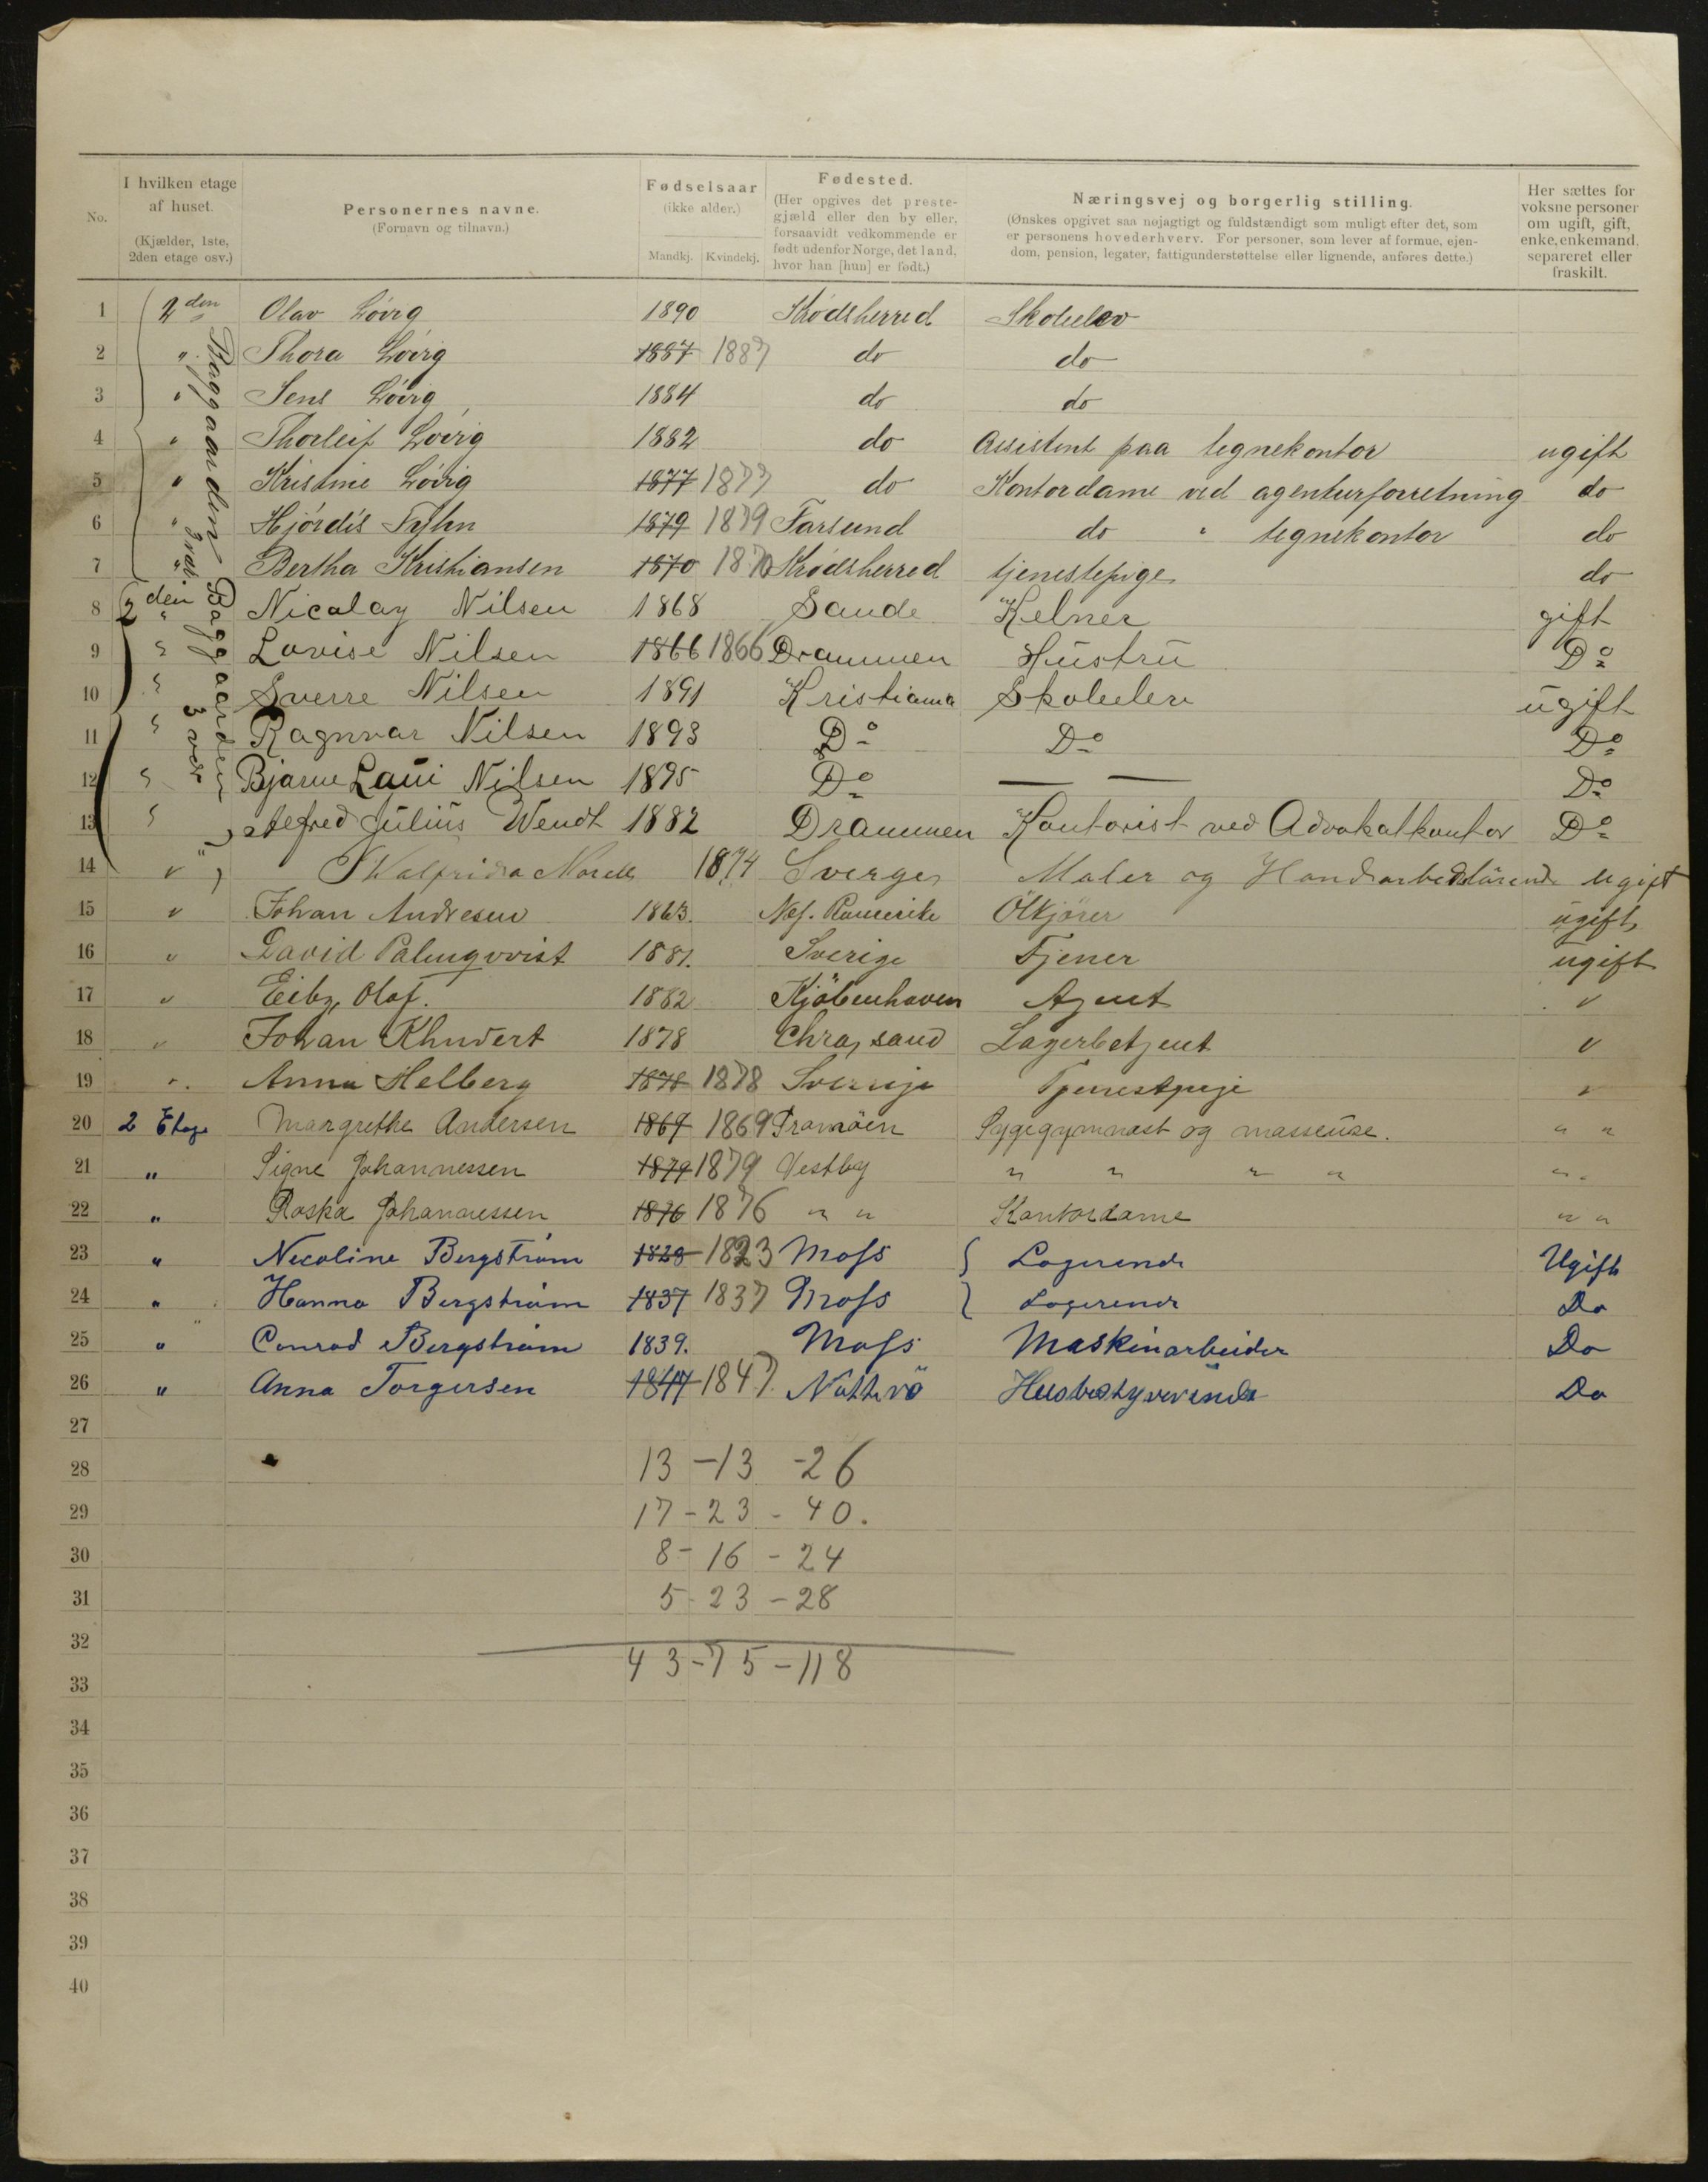 No.
I hvilken etage af huset. (Kjælder, 1ste, 2den etage osv.)
Personernes navne. (Fornavn og tilnavn.)
Fødselsaar (ikke alder.) Mandkj. Kvindekj.
Fødested. (Her opgives det prestegjæld eller den by eller, forsaavidt vedkommende er født udenfor Norge, det land, hvor han [hun] er født.)
Næringsvej og borgerlig stilling. (Ønskes opgivet saa nøjagtigt og fuldstændigt som muligt efter det, som er personens hovederhverv. For personer, som lever af formue, ejendom, pension, legater, fattigunderstøttelse eller lignende, anføres dette.)
Her sættes for voksne personer om ugift, gift, enke, enkemand, separeret eller fraskilt.
1 2den Olav Lövig 1890 Krødsherred Skoleelev
2 " Thora Lövig 1887 1887 do do
3 " Jens Lövig 1884 do do
4 " Thorleif Lövig 1882 do Assistent paa tegnekontor ugift
5 " Kristine Lövig 1877 1877 do Kontordame ved agenturforretning do
6 " Hjördis 1879 1879 Farsund do " tegnekontor do
7 " Bertha Kristiansen 1870 1870 Krødsherred tjenestepige do
Baggaarden
8 2den " Nicolay Nilsen 1868 Sande Kelner gift
9 " Lovise Nilsen 1866 1866 Drammen Hustru Do
10 " Sverre Nilsen 1891 Kristiania Skoleelev ugift
11 " Ragnvar Nilsen 1893 Do Do Do
12 " Bjarne Laui Nilsen 1895 Do — — Do
Baggaarden 3 vær
13 " Alefred Julius Wendt 1882 Drammen Kontorist ved Advokatkontor Do
14 " Walfrida 1874 Sverge Maler og ugift
15 " Johan Andresen 1863. Næs. Romerike Ölkjörer ugift
16 " David Palmqvist 1881. Sverige Tjener ugift
17 " Olaf. 1882 Kjöbenhaven Agent "
18 " Johan 1878 Chra, sand Lagerbetjent "
19 " Anna Helberg 1878 1878 Sverrige Tjenestpige "
20 2 Etage Margrethe Andersen 1869 1869 Tromöen Sygegymnast og masseüse. " "
21 " Signe Johannessen 1879 1879 Vestby " " " " " "
22 " Johannessen 1876 1876 " " Kontordame " "
23 " Necoline Bergström 1823 1823 Moss } Logerende Ugift
24 " Hanna Bergström 1837 1837 Moss } Logerende Do
25 " Conrad Bergström 1839. Moss Maskinarbeider Do
26 " Anna Torgersen 1847 1847. Nötterö Husbestyrerinde Do
27
28 13 - 13 - 26
29 17 - 23 - 40.
30 8 - 16 - 24
31 5 - 23 - 28
32
33 43 - 75 - 118
34
35
36
37
38
39
40